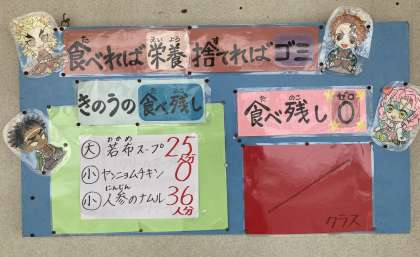 食べれば栄養 捨てればゴミ
きのうの食べ残し
大 若布スープ 25人分
小 ヤンニョムチキン 0
小 人参のナムル 36人分
食べ残し 0
クラス